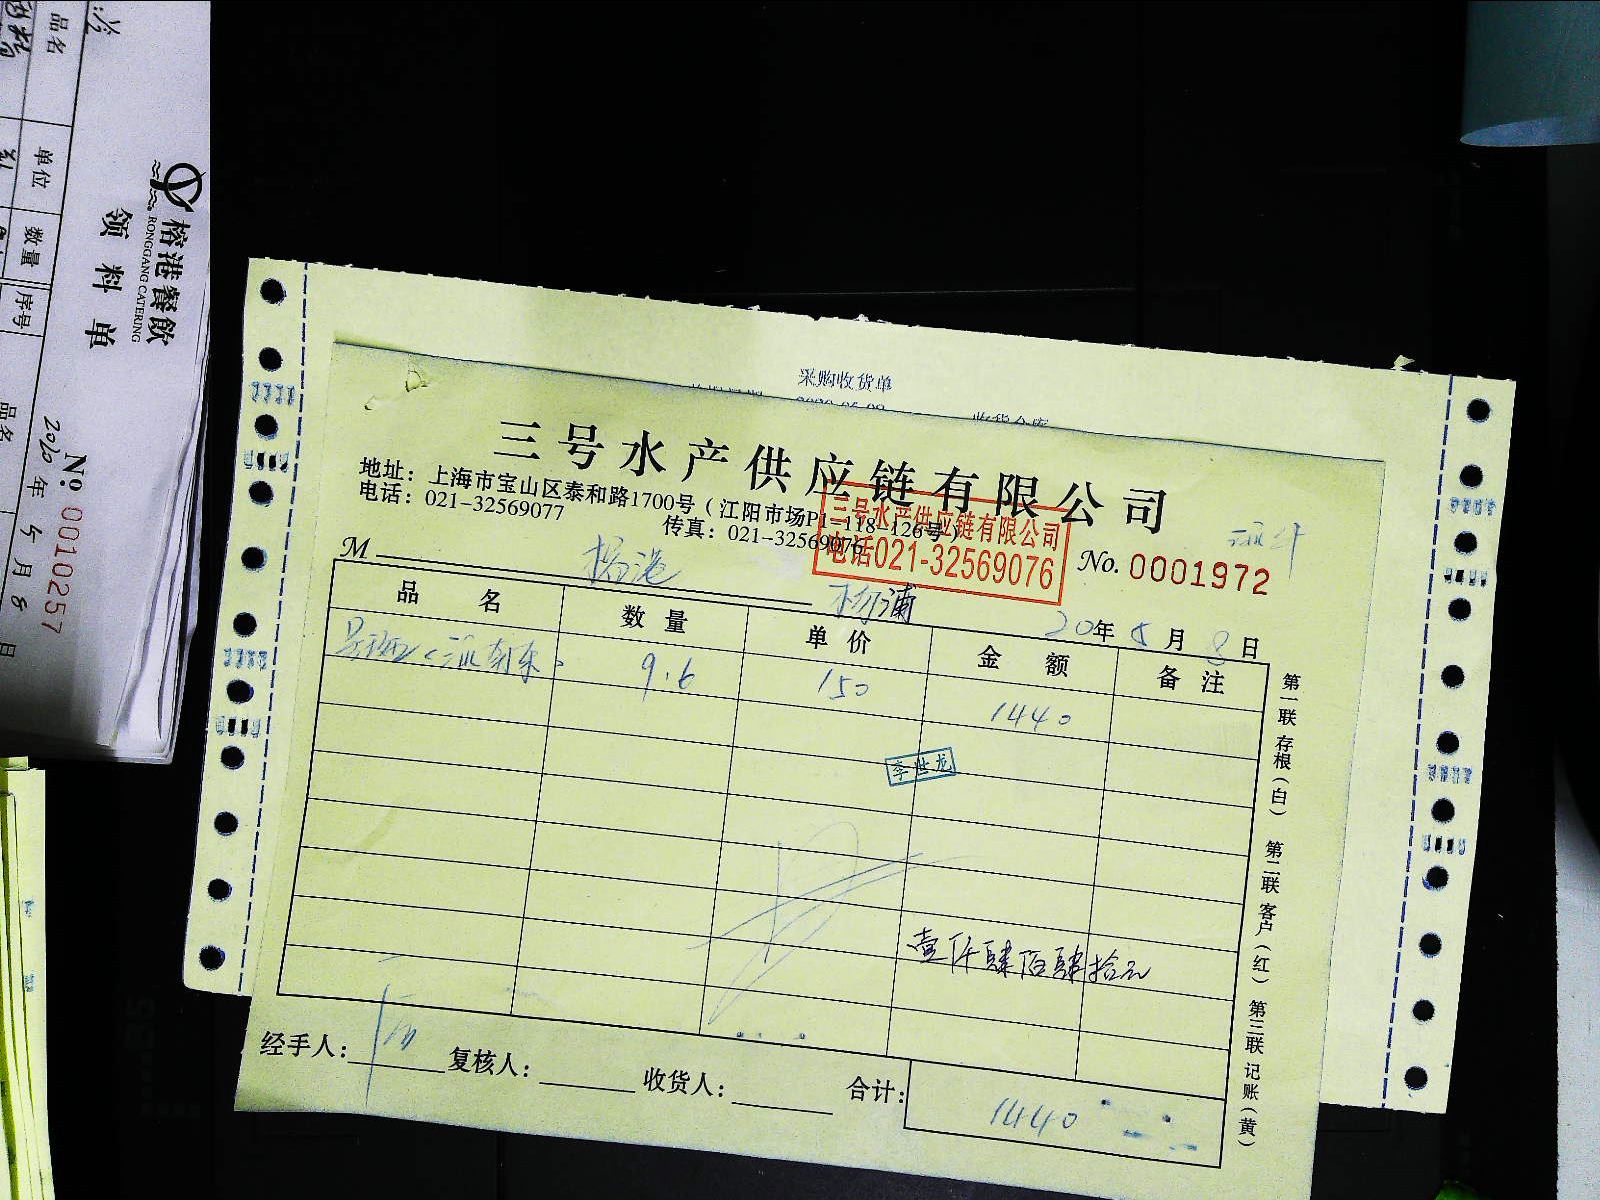 采购收货单
三号水产供应链有限公司
地址：上海市宝山区泰和路1700号（江阳市场P1-118-126号）
电话：021-32569077 传真：021-32569076
三号水产供应链有限公司
电话021-32569076
No. 0001972
M 榕港 杨浦
20年 5月 8日
品名 数量 单价 金额 备注
9.6 150 1440
李世龙
壹仟肆佰肆拾元
经手人： 复核人： 收货人： 合计： 1440
第一联 存根（白） 第二联 客户（红） 第三联 记账（黄）
榕港餐飲
RONGGANG CATERING
领料单
No. 0010257
2020年 5月 8日
品名 单位 数量 序号 品名